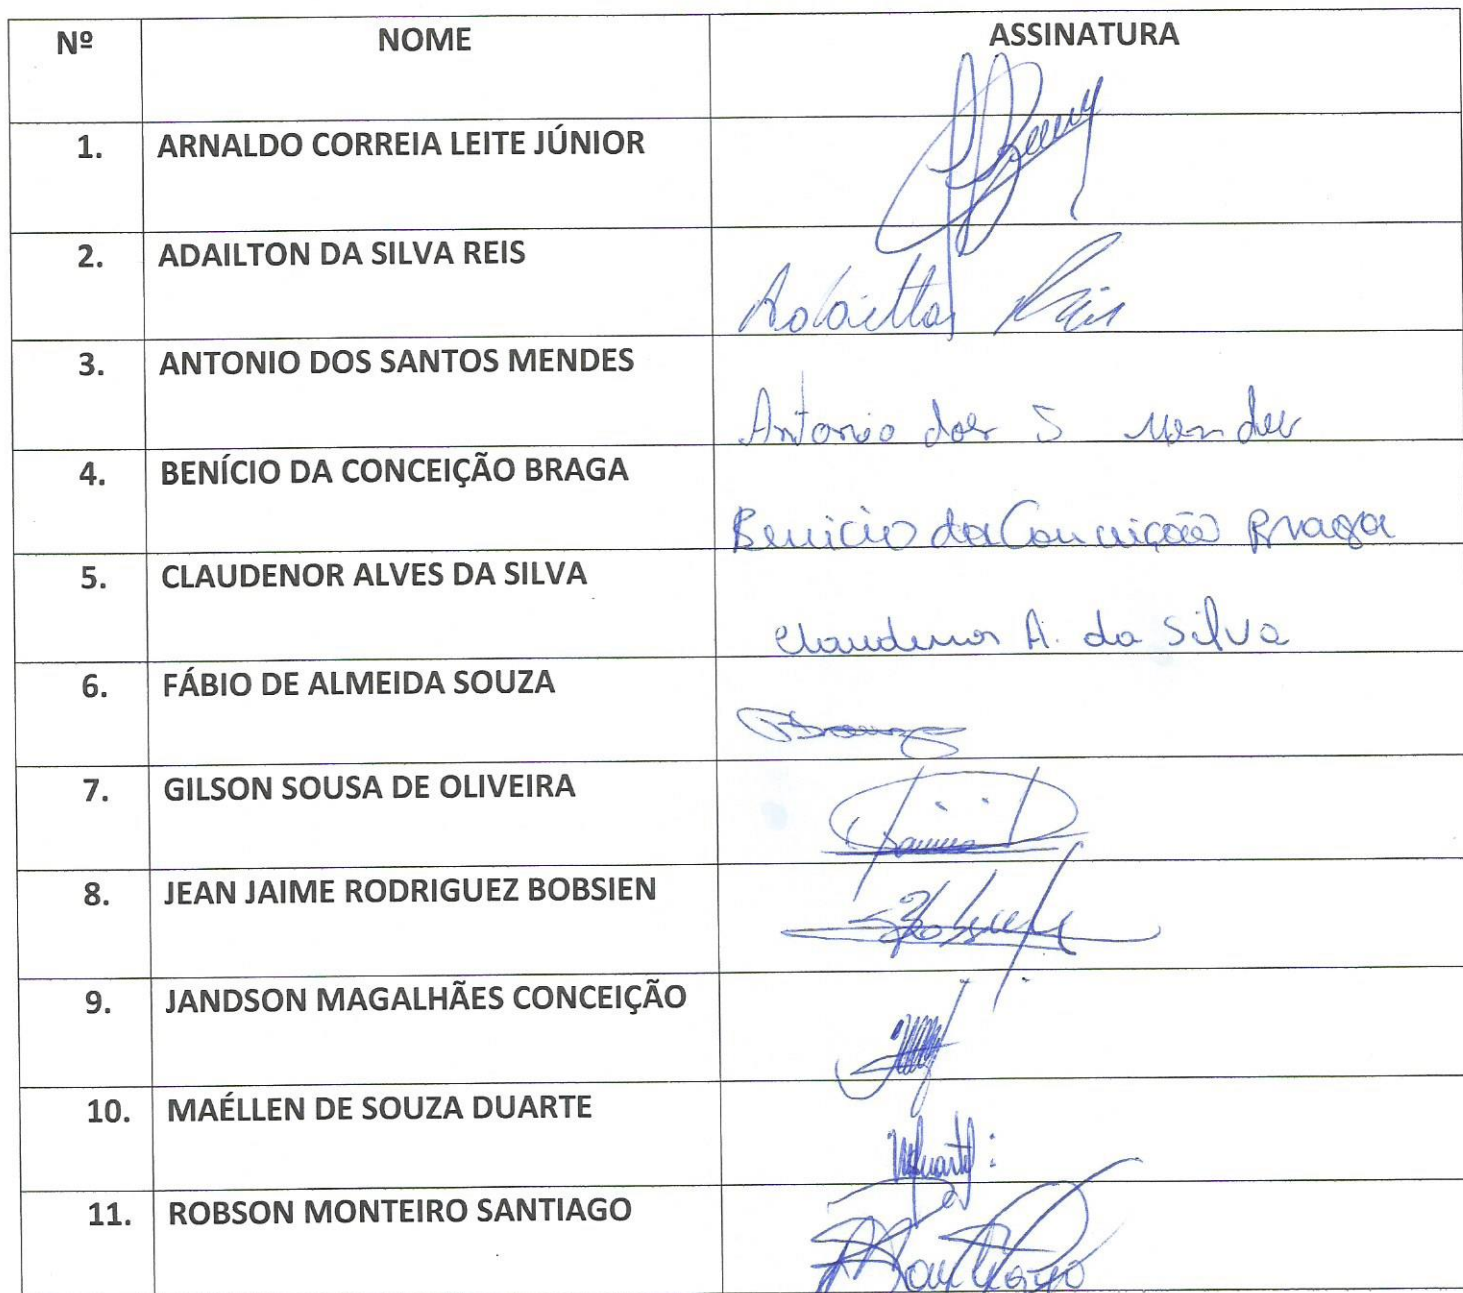 Nº NOME ASSINATURA
1. ARNALDO CORREIA LEITE JÚNIOR
2. ADAILTON DA SILVA REIS
Adailton Reis
3. ANTONIO DOS SANTOS MENDES
Antonio dos S Mendes
4. BENÍCIO DA CONCEIÇÃO BRAGA
Benicio da Conceição Braga
5. CLAUDENOR ALVES DA SILVA
Claudenor A. da Silva
6. FÁBIO DE ALMEIDA SOUZA
7. GILSON SOUSA DE OLIVEIRA
8. JEAN JAIME RODRIGUEZ BOBSIEN
9. JANDSON MAGALHÃES CONCEIÇÃO
10. MAÉLLEN DE SOUZA DUARTE
11. ROBSON MONTEIRO SANTIAGO